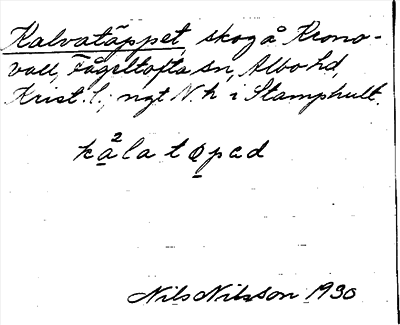 Kalvatäppet, skog å Krono-
vall, Fågeltofta sn, Albo hd,
Krist. l.; ngt N. h i Stamphult.
kạ²la tọpad
Nils Nilsson 1930